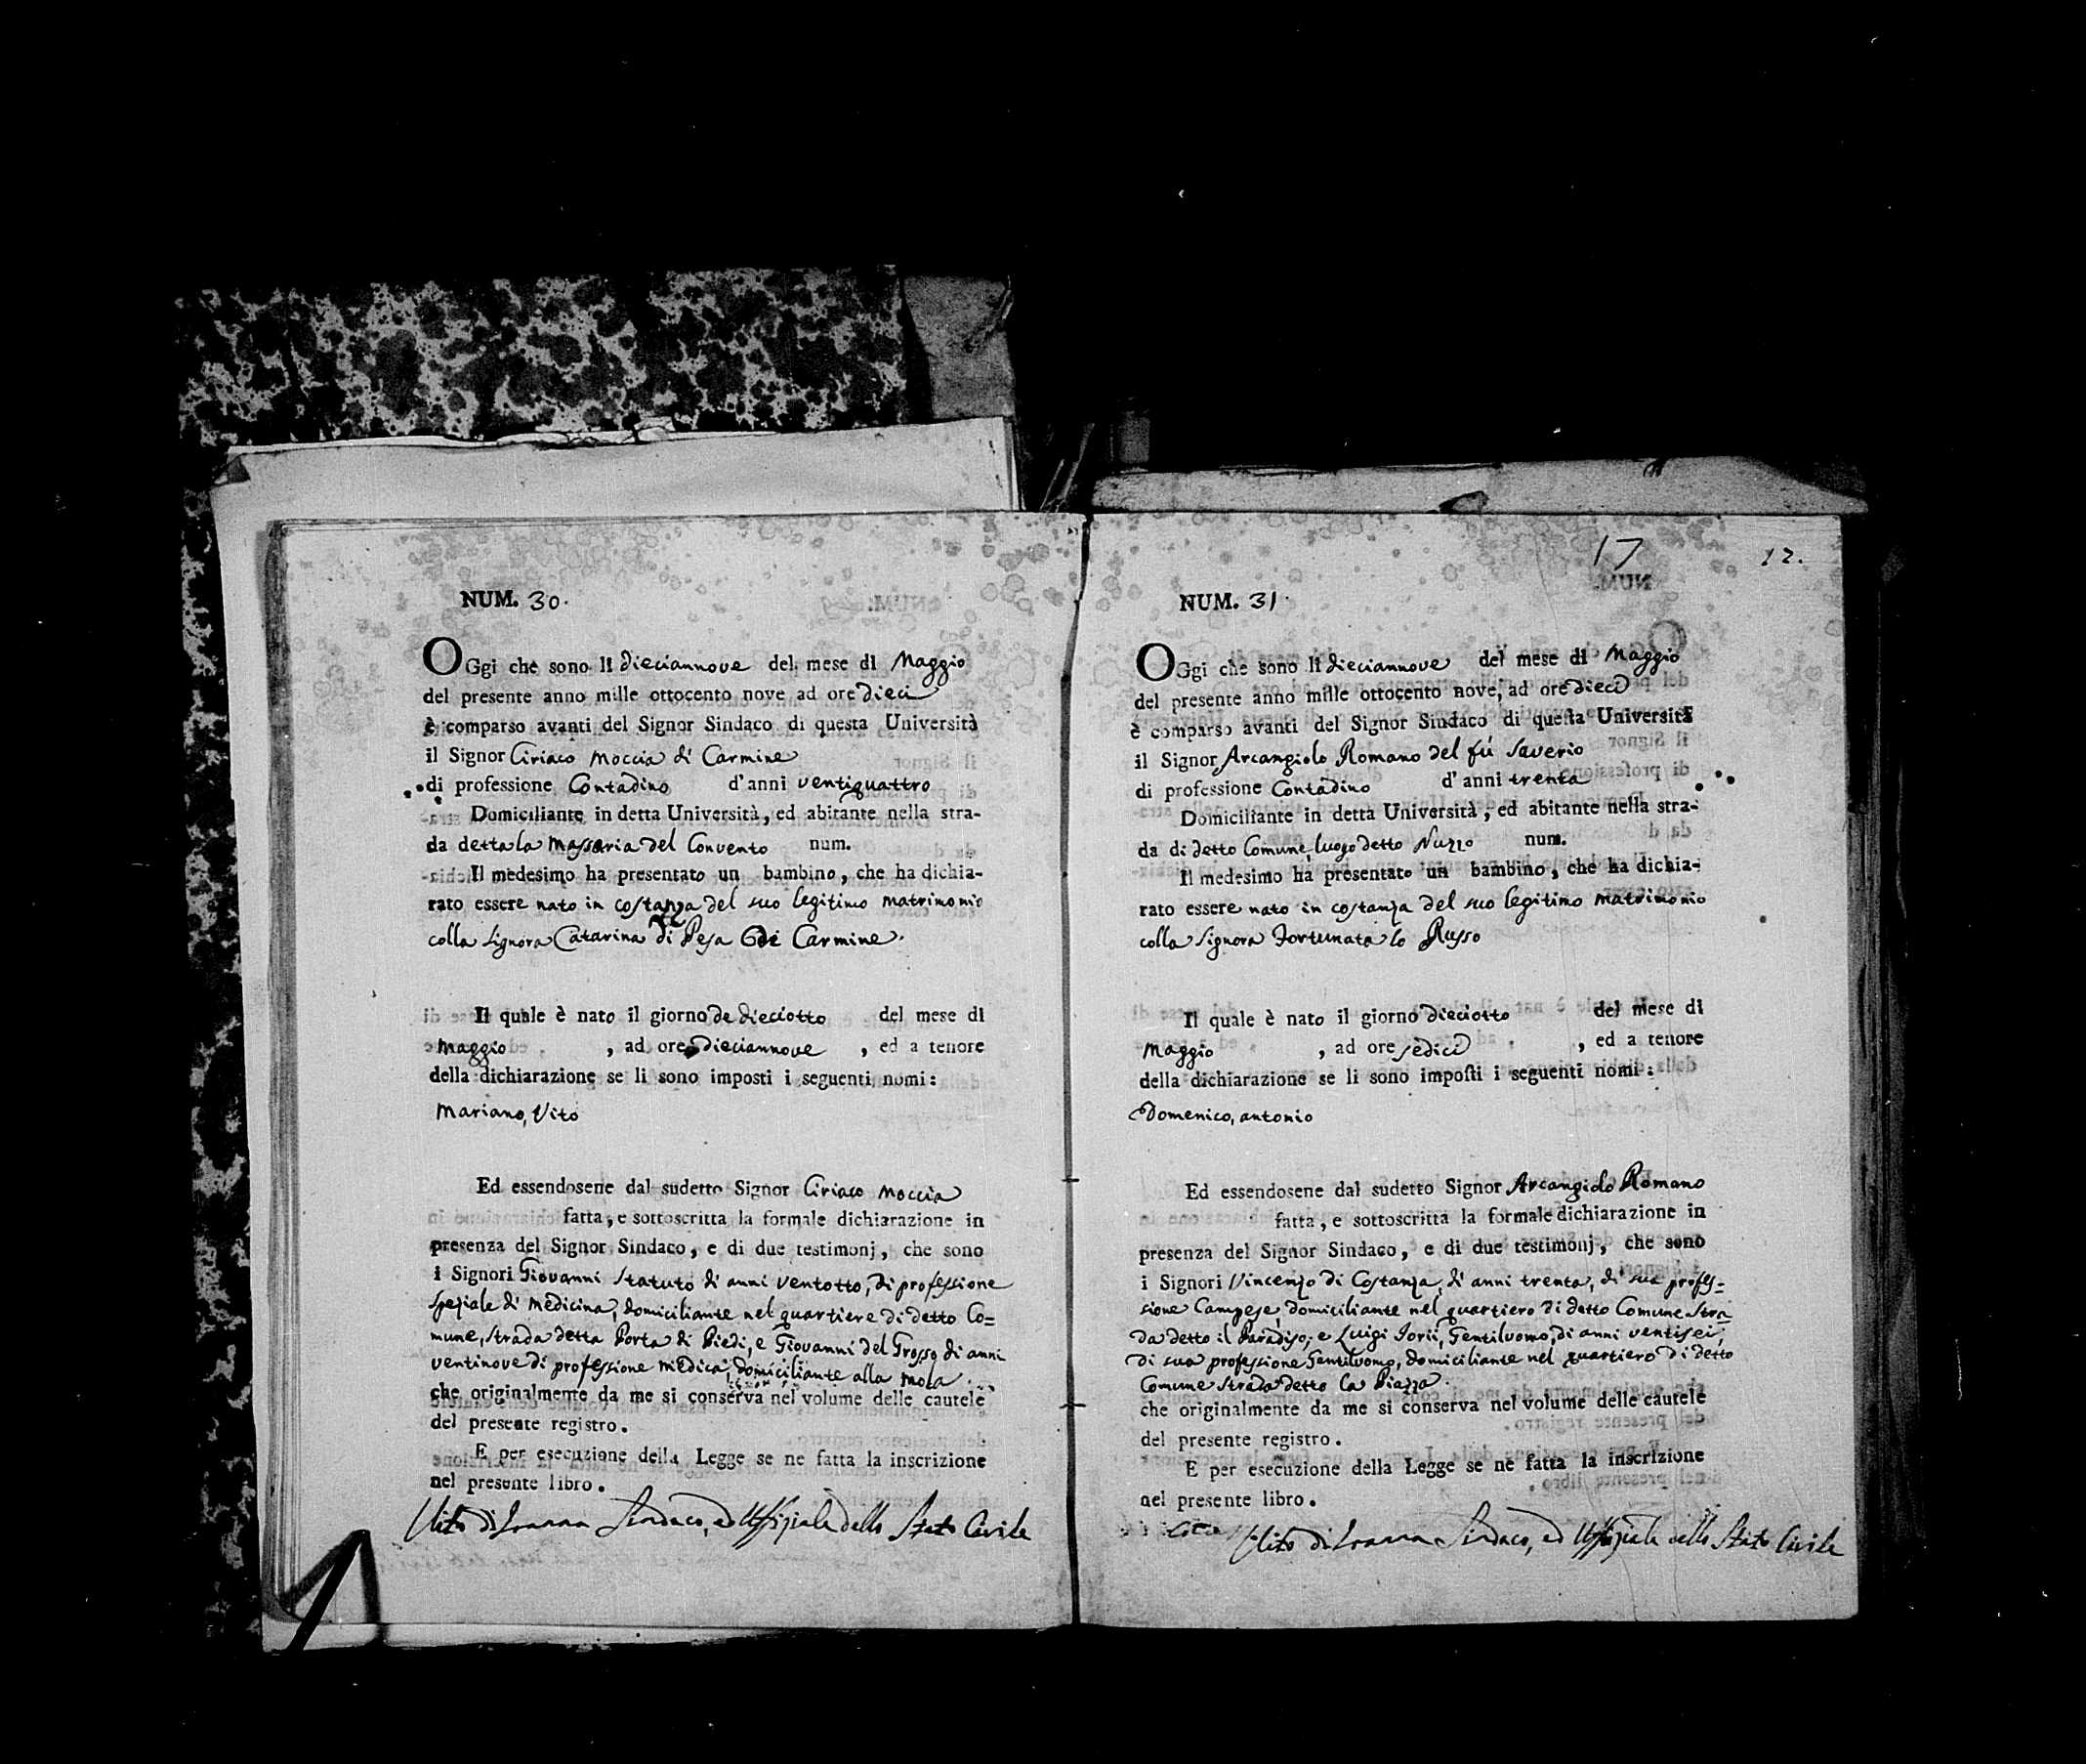 NUM. 30.
OGgi che sono li dieciannove del mese di Maggio
del presente anno mille ottocento nove ad ore dieci
è comparso avanti del Signor Sindaco di questa Università
il Signor Ciriaco Moccia di Carmine
di professione Contadino d'anni ventiquattro
Domiciliante in detta Università, ed abitante nella stra-
da detta la Massaria del Convento num.
Il medesimo ha presentato un bambino, che ha dichia-
rato essere nato in costanza del suo legitimo matrimonio
colla Signora Catarina di Pesa di Carmine.
Il quale è nato il giorno de dieciotto del mese di
Maggio , ad ore dieciannove , ed a tenore
della dichiarazione se li sono imposti i seguenti nomi:
Mariano, Vito
Ed essendosene dal sudetto Signor Ciriaco Moccia
fatta, e sottoscritta la formale dichiarazione in
presenza del Signor Sindaco, e di due testimonj, che sono
i Signori Giovanni Statuto di anni ventotto, di professione
speziale di medicina, domiciliante nel quartiere di detto Co=
mune, strada detta Porta di Piedi, e Giovanni del Grosso di anni
ventinove di professione medica, domiciliante alla mola
che originalmente da me si conserva nel volume delle cautele
del presente registro.
E per esecuzione della Legge se ne fatta la inscrizione
nel presente libro.
Vito di Ioanna Sindaco, ed Uffiziale dello Stato Civile
17
12.
NUM. 31.
OGgi che sono li dieciannove del mese di Maggio
del presente anno mille ottocento nove, ad ore dieci
è comparso avanti del Signor Sindaco di questa Università
il Signor Arcangiolo Romano del fù Saverio
di professione Contadino d'anni trenta
Domiciliante in detta Università, ed abitante nella stra-
da di detto Comune, luogo detto Nuzzo num.
Il medesimo ha presentato un bambino, che ha dichia-
rato essere nato in costanza del suo legitimo matrimonio
colla Signora Fortunata lo Russo
Il quale è nato il giorno dieciotto del mese di
Maggio , ad ore sedici , ed a tenore
della dichiarazione se li sono imposti i seguenti nomi:
Domenico, antonio
Ed essendosene dal sudetto Signor Arcangiolo Romano
fatta, e sottoscritta la formale dichiarazione in
presenza del Signor Sindaco, e di due testimonj, che sono
i Signori Vincenzo di Costanza, di anni trenta, di sua profes=
sione Campese, domiciliante nel quartiero di detto Comune Stra=
da detto il Paradiso, e Luigi Iorii, Gentiluomo, di anni ventisei,
di sua professione Gentiluomo, domiciliante nel quartiero di detto
Comune strada detto la Piazza.
che originalmente da me si conserva nel volume delle cautele
del presente registro.
E per esecuzione della Legge se ne fatta la inscrizione
nel presente libro.
Vito di Ioanna Sindaco, ed Uffiziale dello Stato Civile